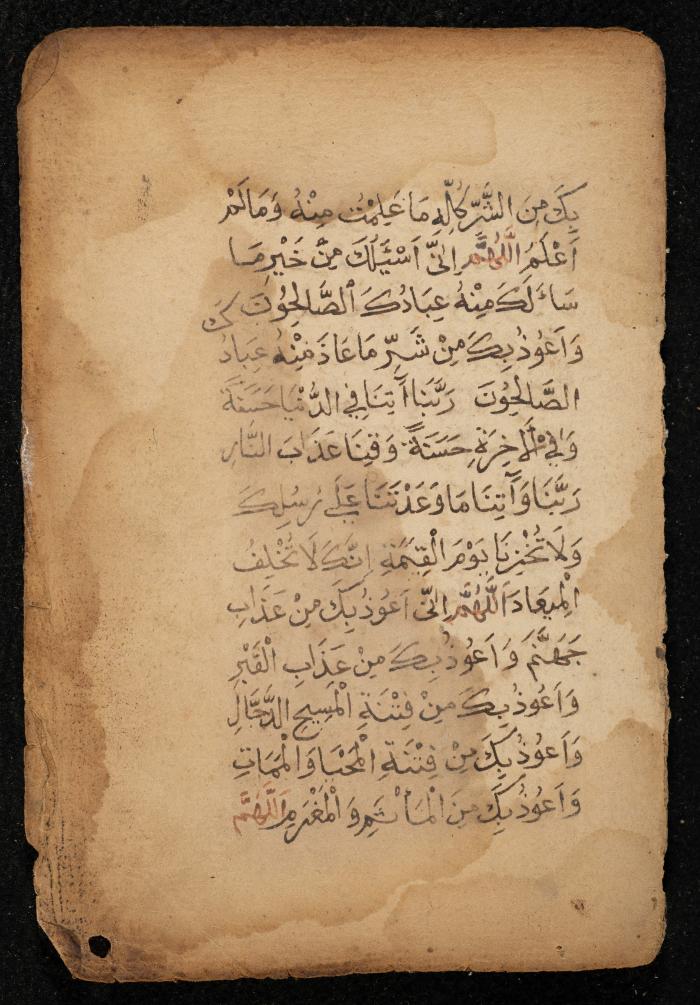 بِكَ مِنَ الشَّرِّ كُلِّهِ مَا عَلِمْتُ مِنْهُ وَمَا لَمْ
اَعْلَمُ اَللّٰهُمَّ اِنّيِ اَسْئَلُكَ مِنْ خَيْرِ مَا
سَاَلَكَ مِنْهُ عِبَادُكَ الصَّالِحُوْنَ
وَاَعُوْذُ بِكَ مِنْ شَرِّ مَا عَاذَ مِنْهُ عِبَادُكَ
الصَّالِحُوْنَ رَبَّنَا اٰتِنَا فِي الدُّنْيَا حَسَنَةً
وَفِي الْاٰخِرَةِ حَسَنَةً وَقِنَا عَذَابَ النَّارِ
رَبَّنَا وَاٰتِنَا مَا وَعَدْتَنَا عَلٰى رُسُلِكَ
وَلَا تُخْزِنَا يَوْمَ الْقِيٰمَةِ اِنَّكَ لَا تُخْلِفُ
الْمِيعَادَ اَللّٰهُمَّ اِنّيِ اَعُوْذُ بِكَ مِنْ عَذَابِ
جَهَنَّمَ وَاَعُوْذُ بِكَ مِنْ عَذَابِ الْقَبْرِ
وَاَعُوْذُ بِكَ مِنْ فِتْنَةِ الْمَسِيحِ الدَّجَّالِ
وَاَعُوْذُ بِكَ مِنْ فِتْنَةِ الْمَحْيَا وَالْمَمَاتِ
وَاَعُوْذُ بِكَ مِنَ الْمَأْثَمِ وَالْمَغْرَمِ اَللّٰهُمَّ